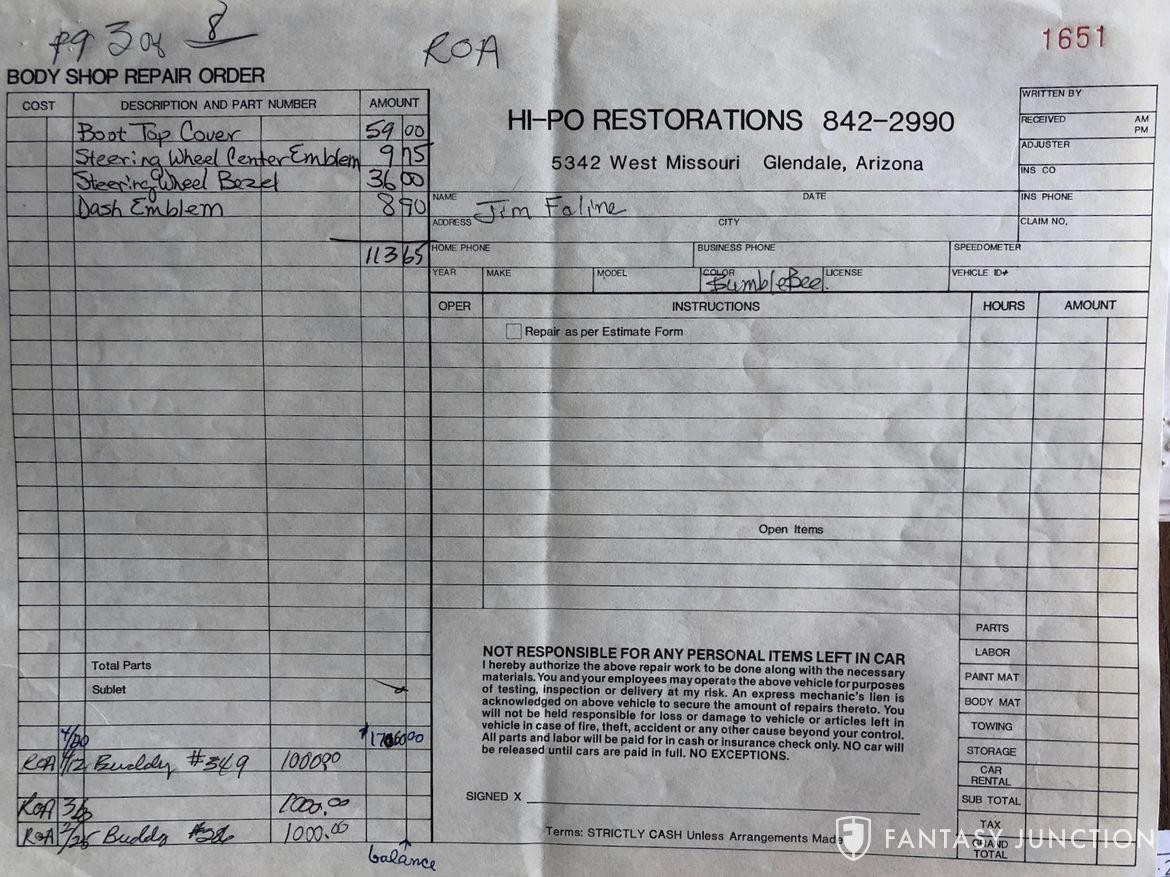 pg 3 of 8
ROA
1651
BODY SHOP REPAIR ORDER
COST DESCRIPTION AND PART NUMBER AMOUNT
Boot Top Cover 59 00
Steering Wheel Center Emblem 9 75
Steering Wheel Bezel 36 00
Dash Emblem 8 90
113 65
HI-PO RESTORATIONS 842-2990
5342 West Missouri Glendale, Arizona
WRITTEN BY
RECEIVED AM PM
ADJUSTER
INS CO
NAME Jim Faline DATE INS PHONE
ADDRESS CITY CLAIM NO.
HOME PHONE BUSINESS PHONE SPEEDOMETER
YEAR MAKE MODEL COLOR BumbleBee. LICENSE VEHICLE ID#
OPER INSTRUCTIONS HOURS AMOUNT
Repair as per Estimate Form
Open Items
Total Parts
Sublet
4/20
ROA 4/12 Buddy #349 1000.00
ROA 1000.00
ROA 2/25 Buddy 1000.00
balance
NOT RESPONSIBLE FOR ANY PERSONAL ITEMS LEFT IN CAR
I hereby authorize the above repair work to be done along with the necessary
materials. You and your employees may operate the above vehicle for purposes
of testing, inspection or delivery at my risk. An express mechanic's lien is
acknowledged on above vehicle to secure the amount of repairs thereto. You
will not be held responsible for loss or damage to vehicle or articles left in
vehicle in case of fire, theft, accident or any other cause beyond your control.
All parts and labor will be paid for in cash or insurance check only. NO car will
be released until cars are paid in full. NO EXCEPTIONS.
SIGNED X
Terms: STRICTLY CASH Unless Arrangements Made
PARTS
LABOR
PAINT MAT
BODY MAT
TOWING
STORAGE
CAR RENTAL
SUB TOTAL
TAX
GRAND TOTAL
FANTASY JUNCTION